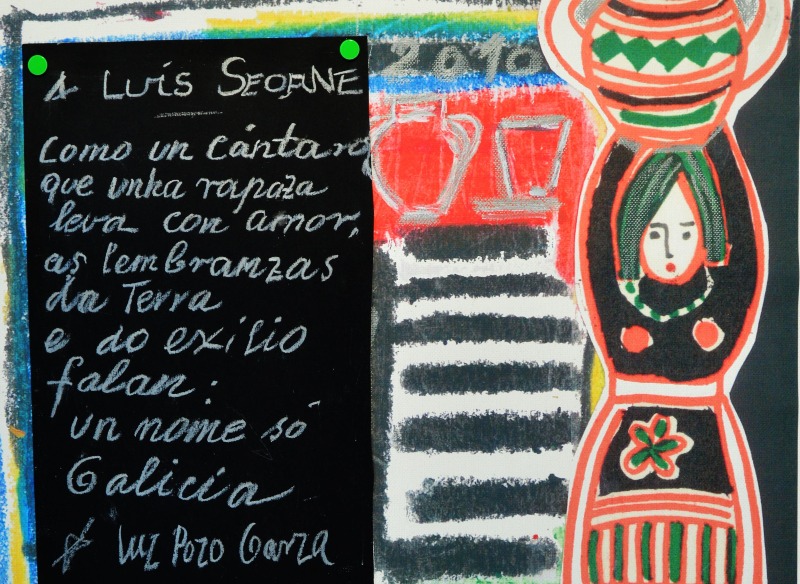 A LUÍS SEOANE
Como un cántaro
que unha rapaza
leva con amor,
as lembranzas
da Terra
e do exilio
falan:
un nome só
Galicia
Luz Pozo Garza
2010